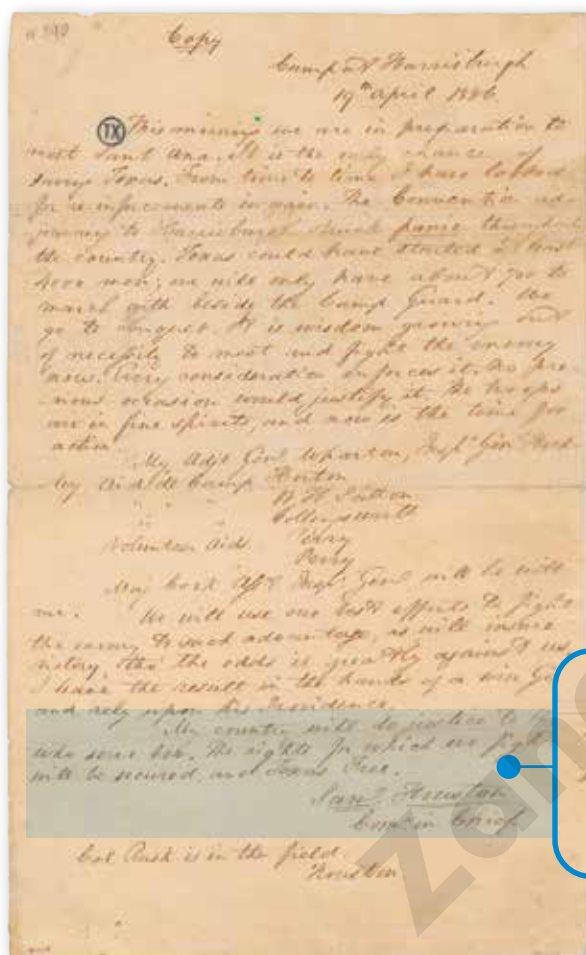 Copy
Camp at Harrisburgh
19th April 1836
TX
This morning we are in preparation to
meet Sant Ana. It is the only chance of
saving Texas. From time to time I have looked
for reinforcements in vain. The Convention ad-
journing to Harrisburg struck panic throughout
the country. Texas could have started at least
4000 men; we will only have about 700 to
march with beside the Camp Guard. We
go to conquest. It is wisdom growing out
of necessity to meet and fight the enemy
now. Every consideration enforces it. No pre-
vious occasion would justify it. The troops
are in fine spirits, and now is the time for
action.
My Adjt Genl Wharton, Inspr Gen
My Aid de Camp Horton
Collinsworth
Volunteer Aids Perry
Perry
Maj Cook Asst Inspr Genl will be with
me. We will use our best efforts to fight
the enemy to such advantage, as will insure
victory, tho' the odds is greatly against us,
I leave the result in the hands of a wise God
and rely upon his Providence.
My country will do justice to
who serve her. The rights for which we fight
will be secured, and Texas Free.
Saml Houston
Comr in Chief
Col Rusk is in the field
Houston